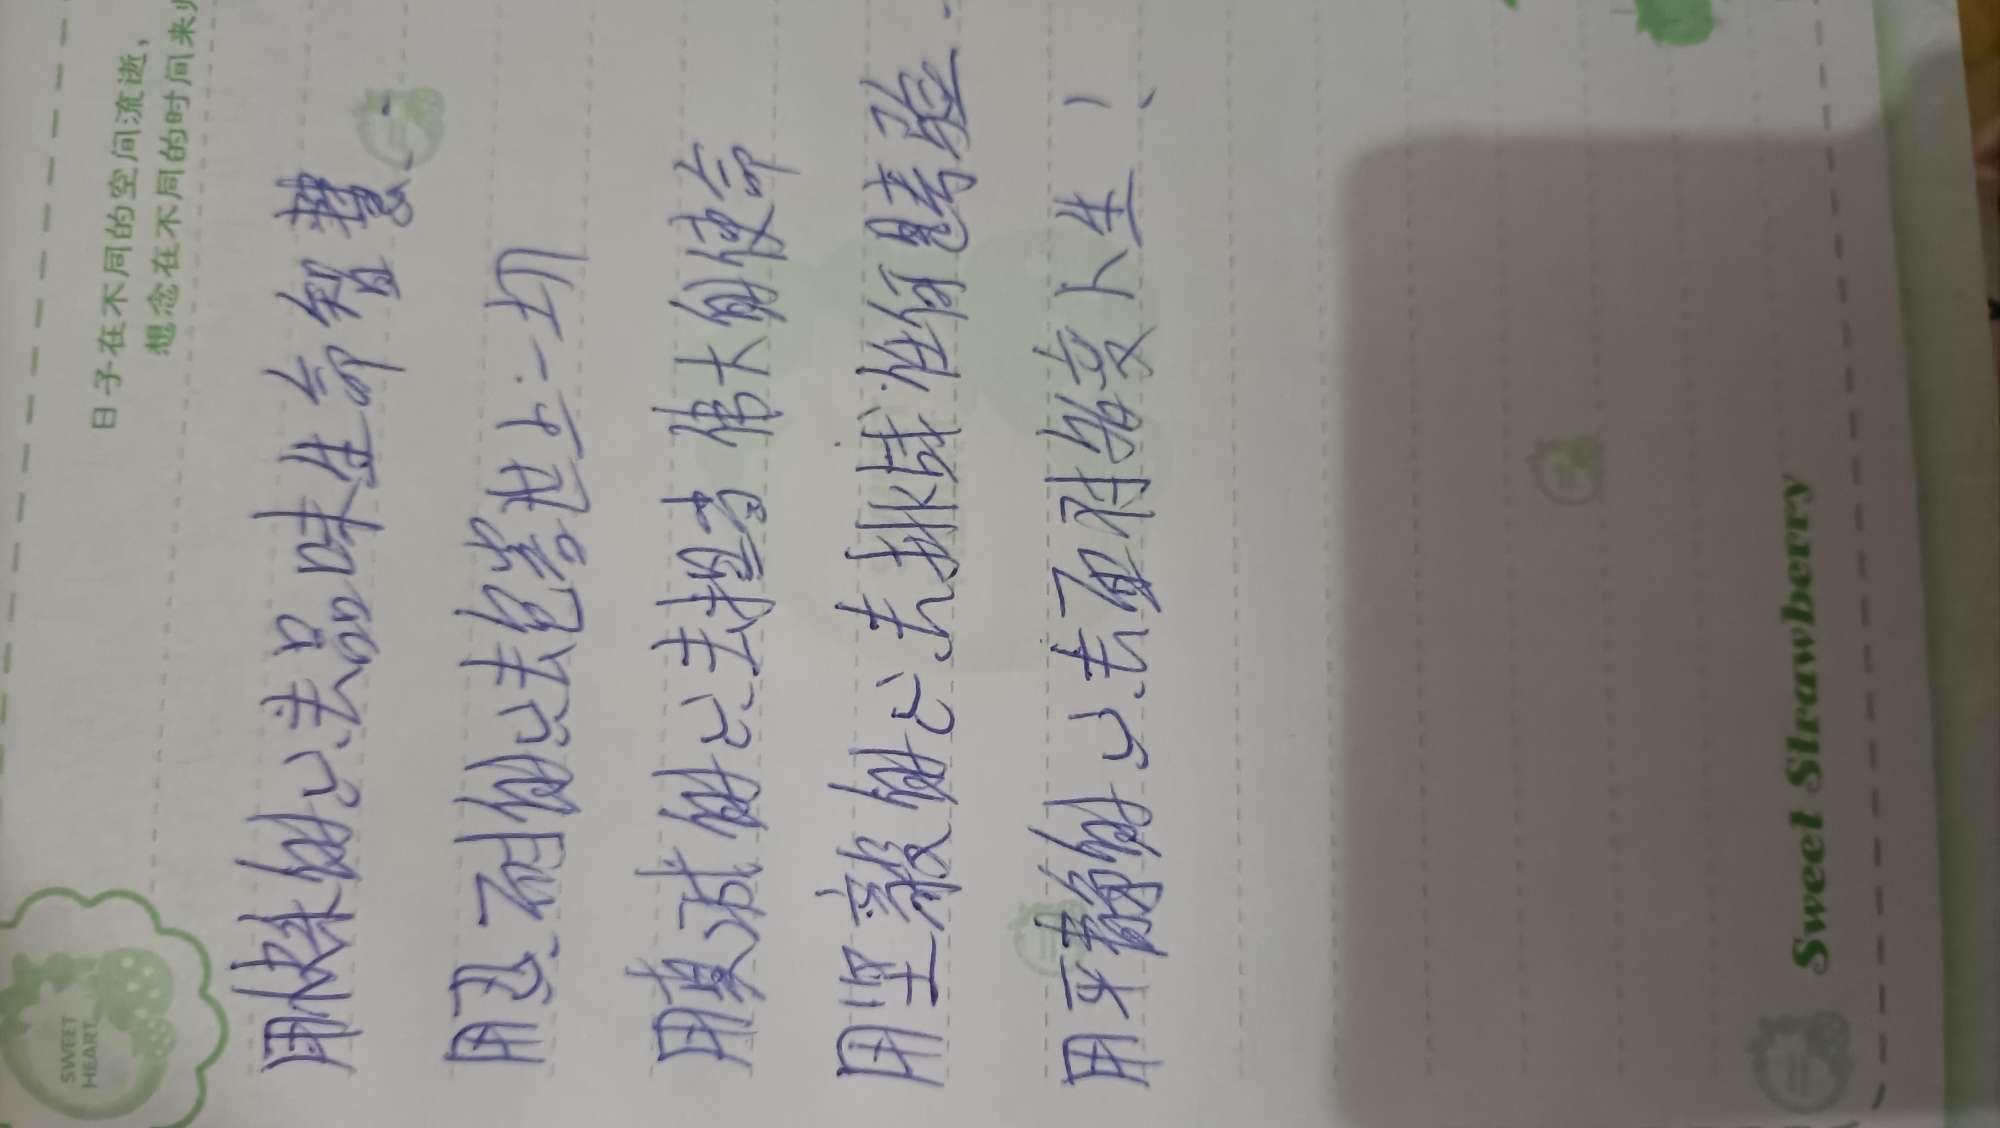 SWEET
HEART
日子在不同的空间流逝，
想念在不同的时间来
用快乐的心去品味生命智慧.
用忍耐的心去包容世上一切
用真诚的心去担当伟大的使命
用坚毅的心去挑战任何考验
用平静的心去面对变人生！
Sweet Strawberry